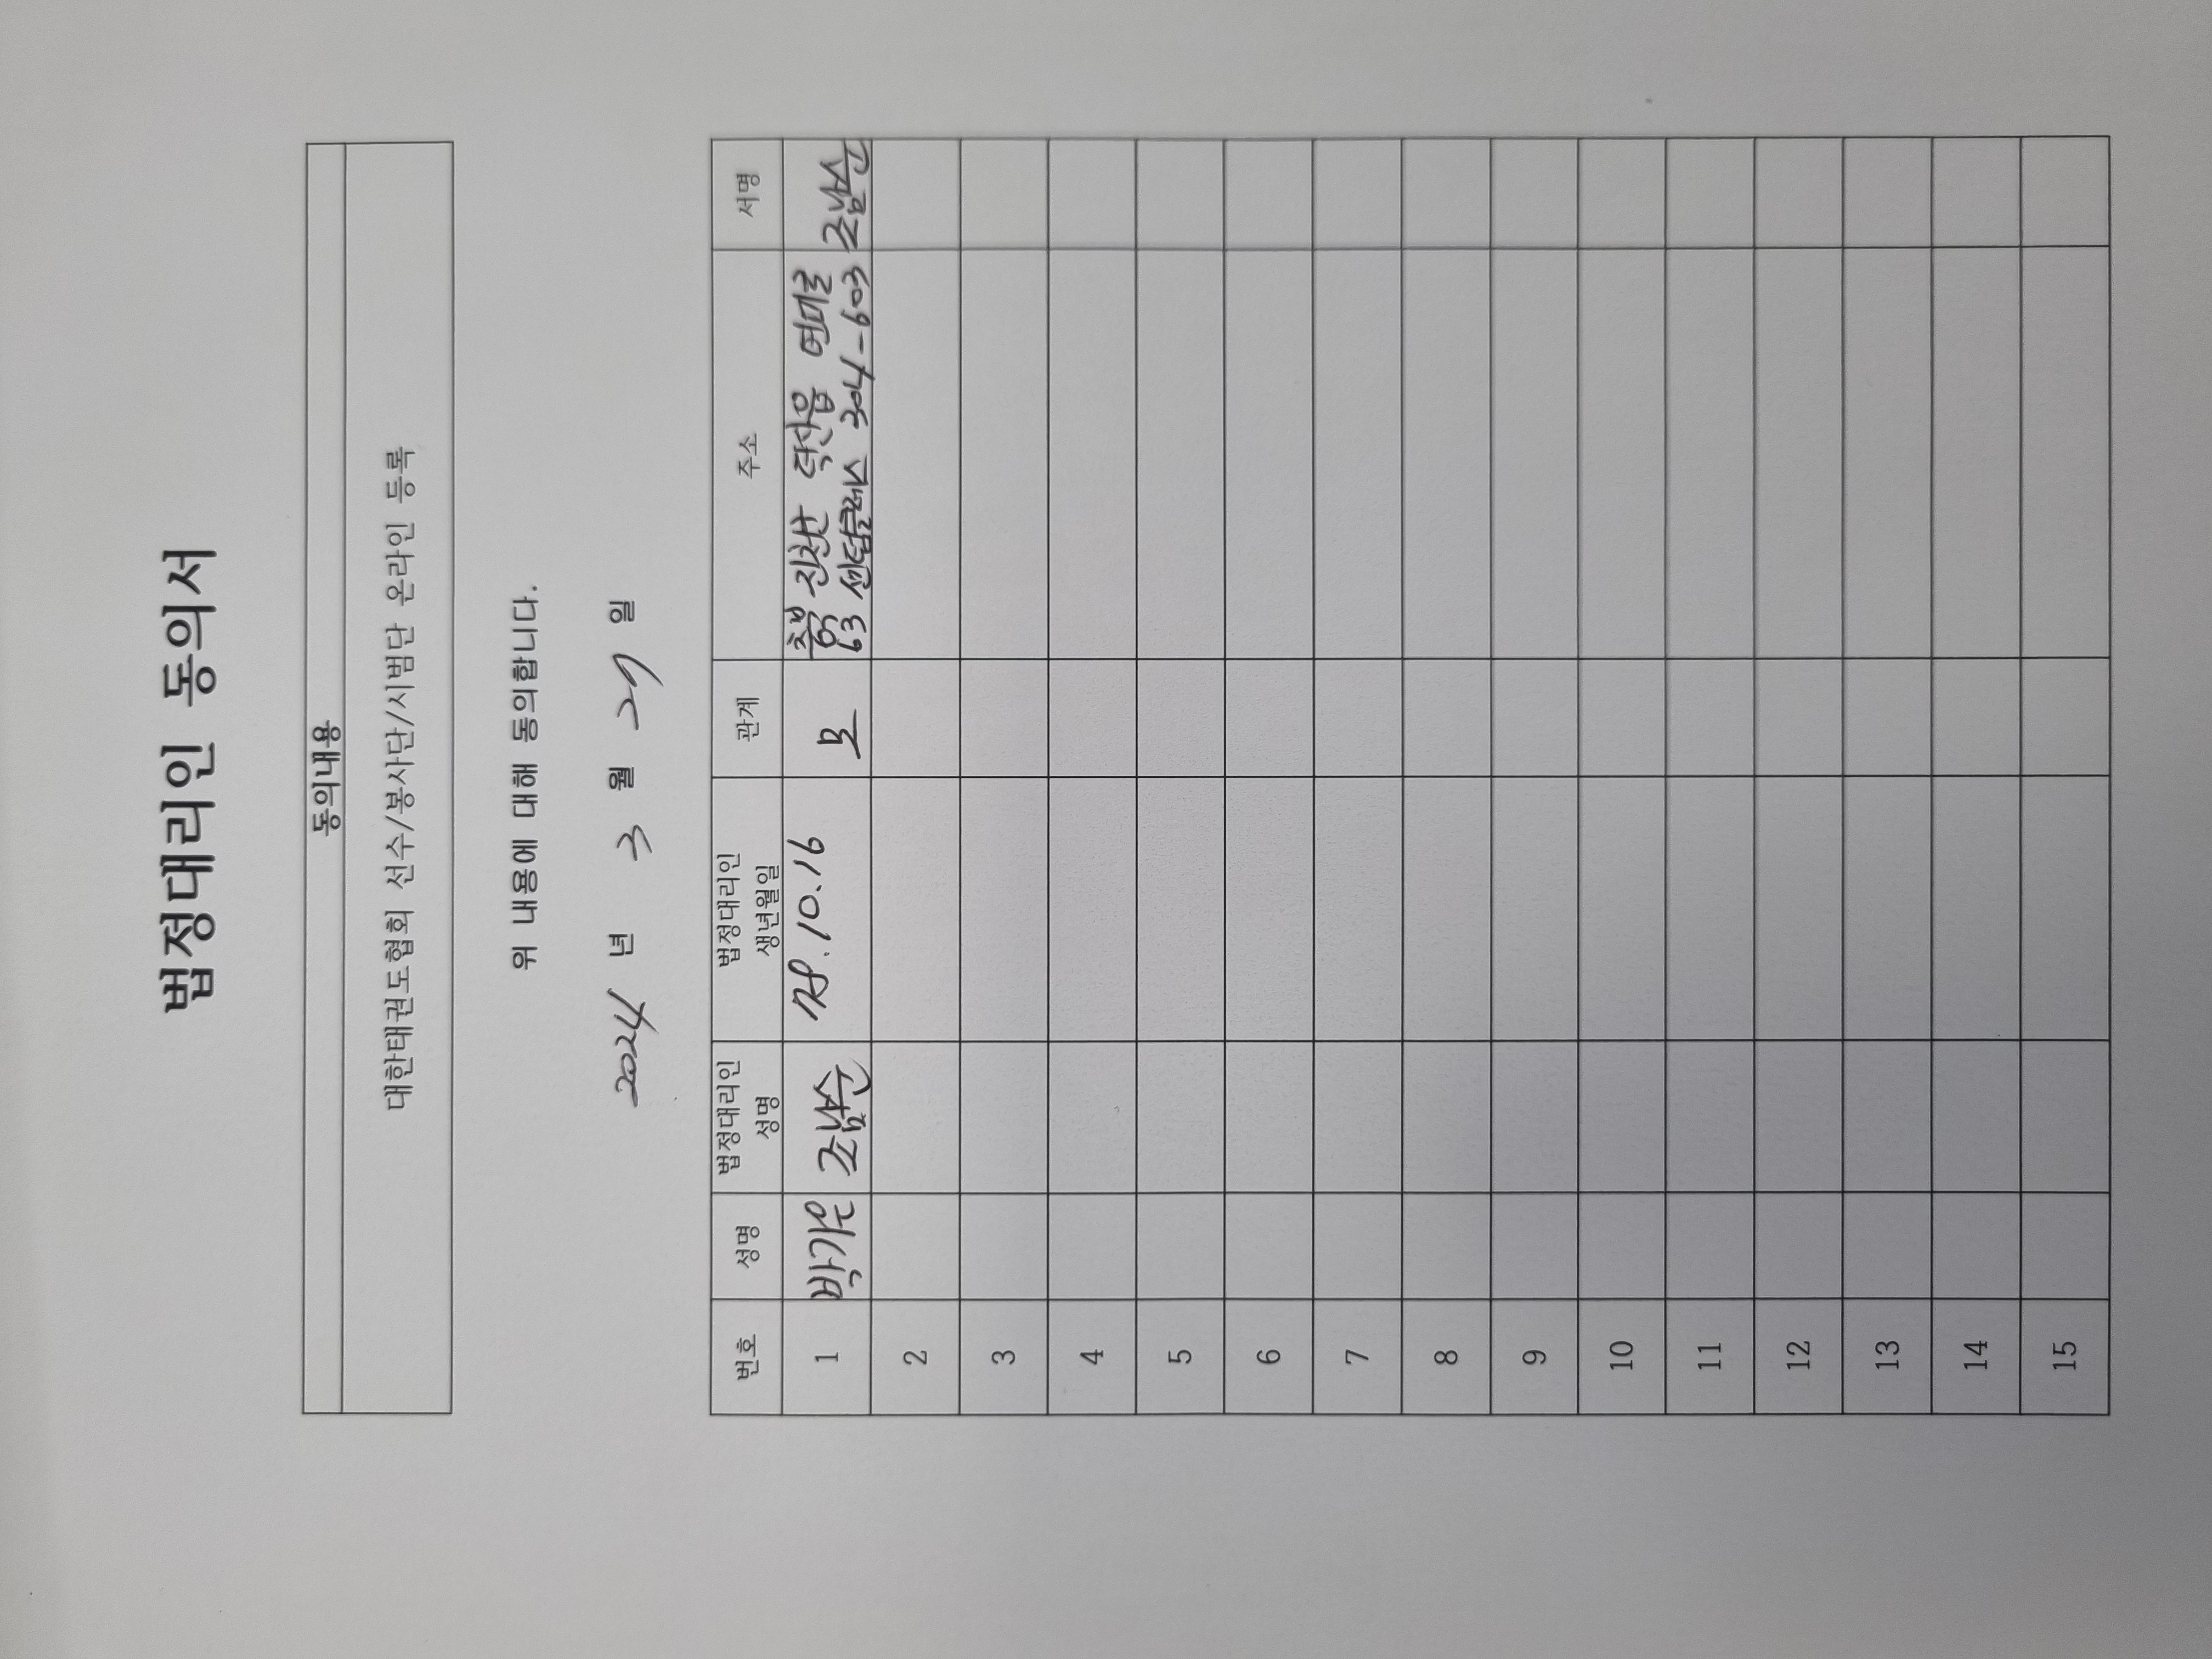 법정대리인 동의서
동의내용
대한태권도협회 선수/봉사단/시범단 온라인 등록
위 내용에 대해 동의합니다.
2024 년 3 월 29 일
번호 성명 법정대리인 성명 법정대리인 생년월일 관계 주소 서명
1 박가은 조남순 78.10.16 모 충북 진천군 덕산읍 연미로 63 센텀클래스 304-603 조남순
2
3
4
5
6
7
8
9
10
11
12
13
14
15